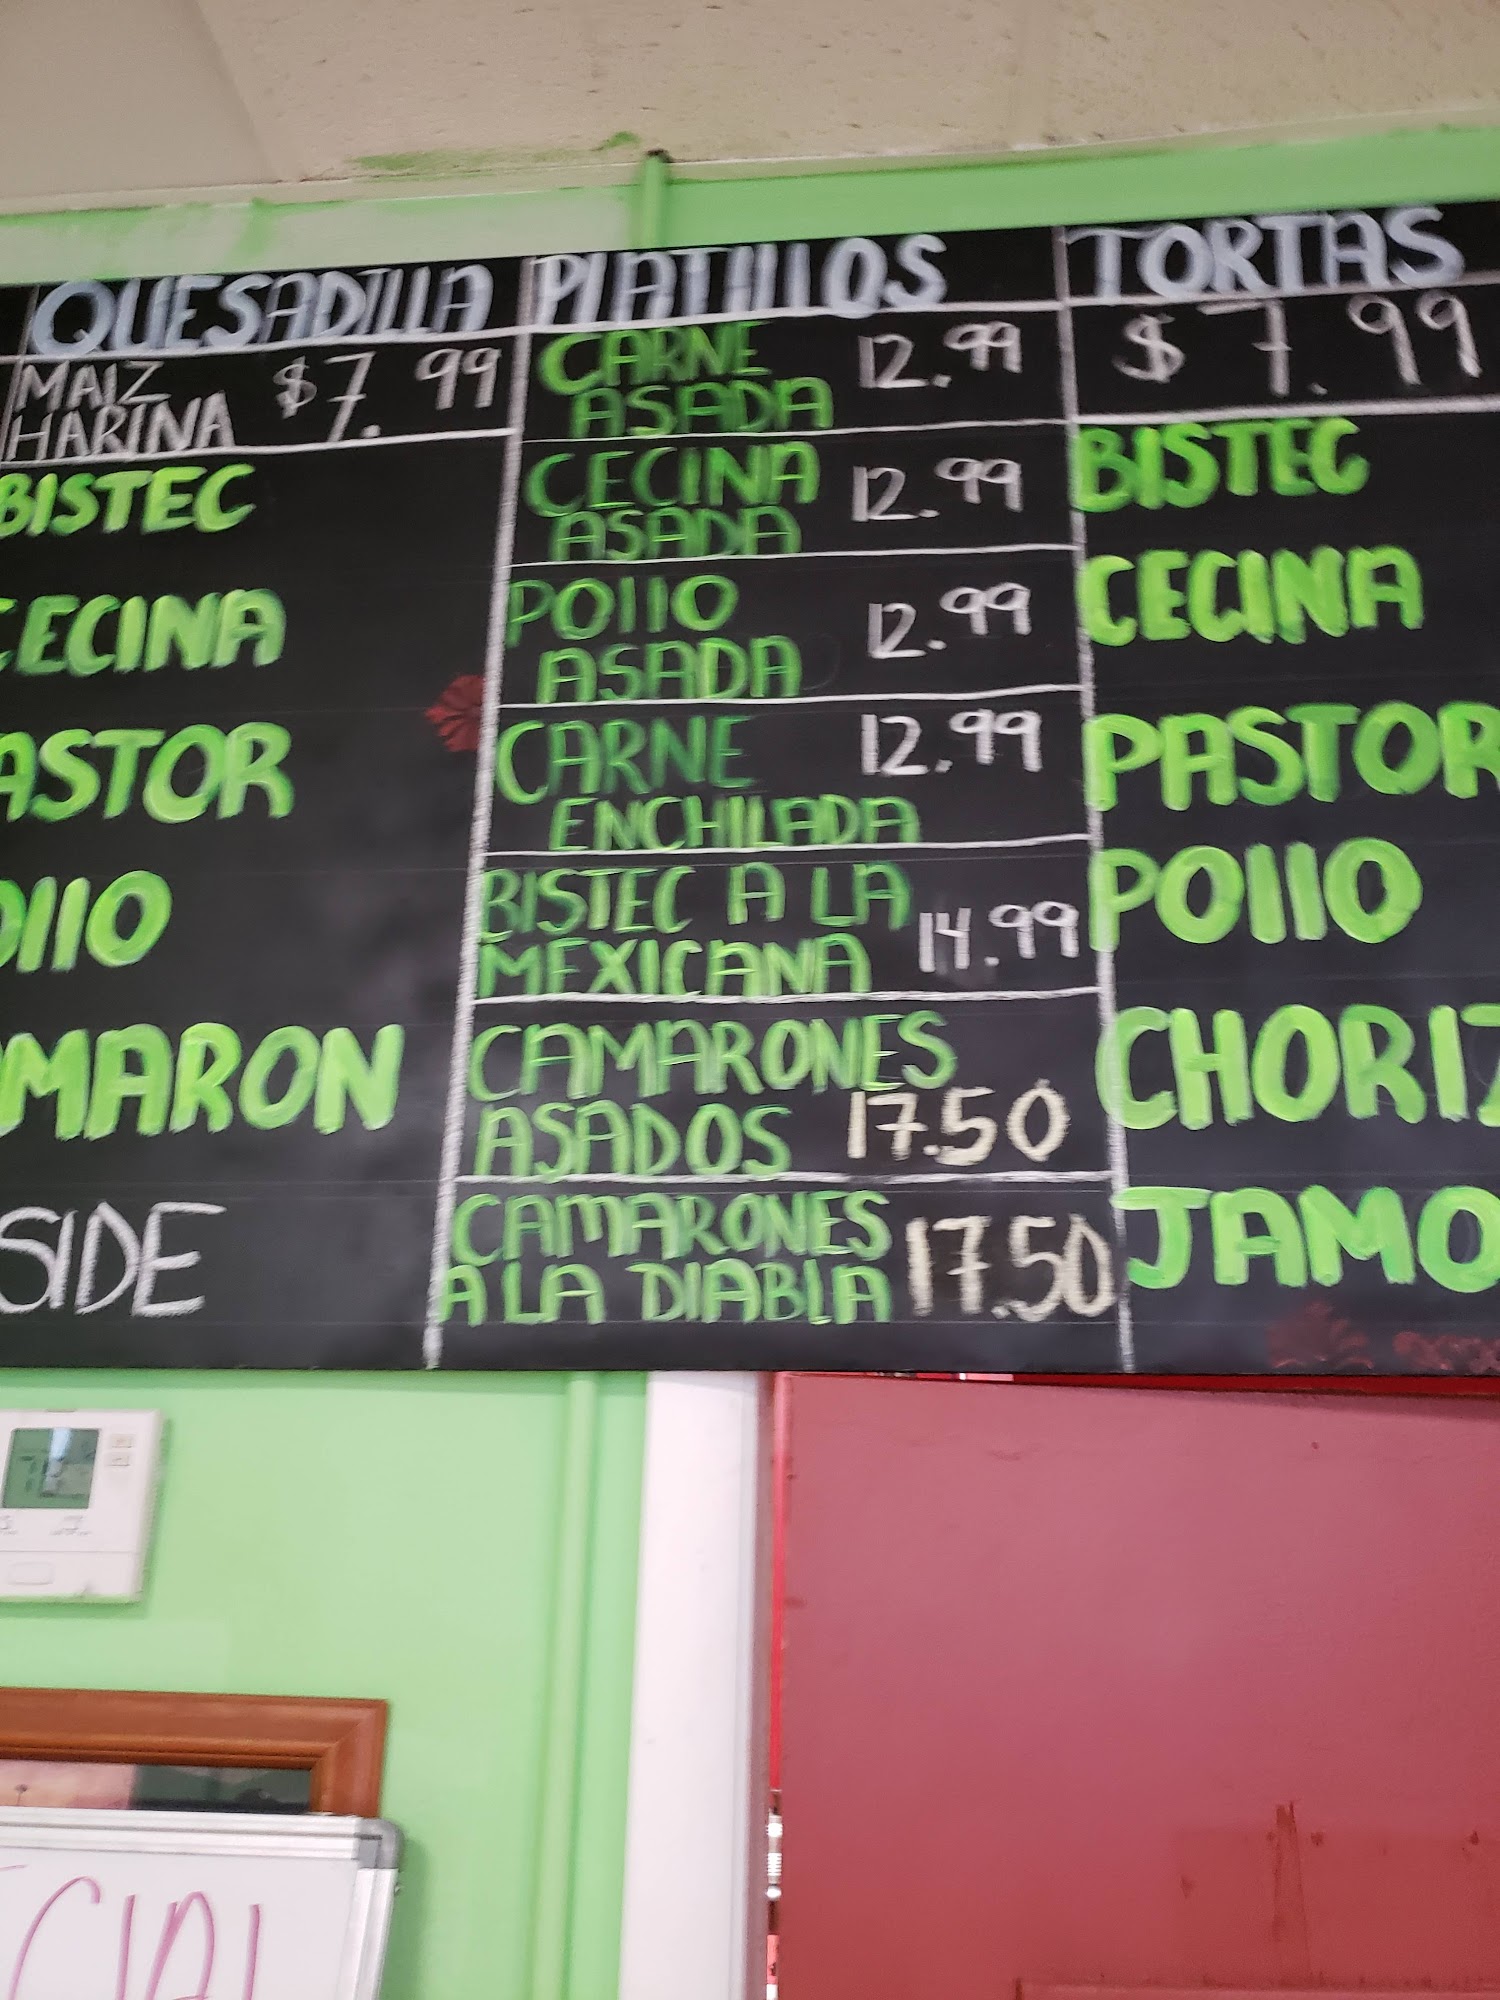 QUESADILLA
MAIZ
HARINA $7.99
BISTEC
CECINA
ASTOR
OLLO
MARON
SIDE
PLATILLOS
CARNE 12.99
ASADA
CECINA 12.99
ASADA
POLLO 12.99
ASADA
CARNE 12.99
ENCHILADA
BISTEC A LA
MEXICANA 14.99
CAMARONES
ASADOS 17.50
CAMARONES
A LA DIABLA 17.50
TORTAS
$7.99
BISTEC
CECINA
PASTOR
POLLO
CHORIZ
JAMO
CIAL